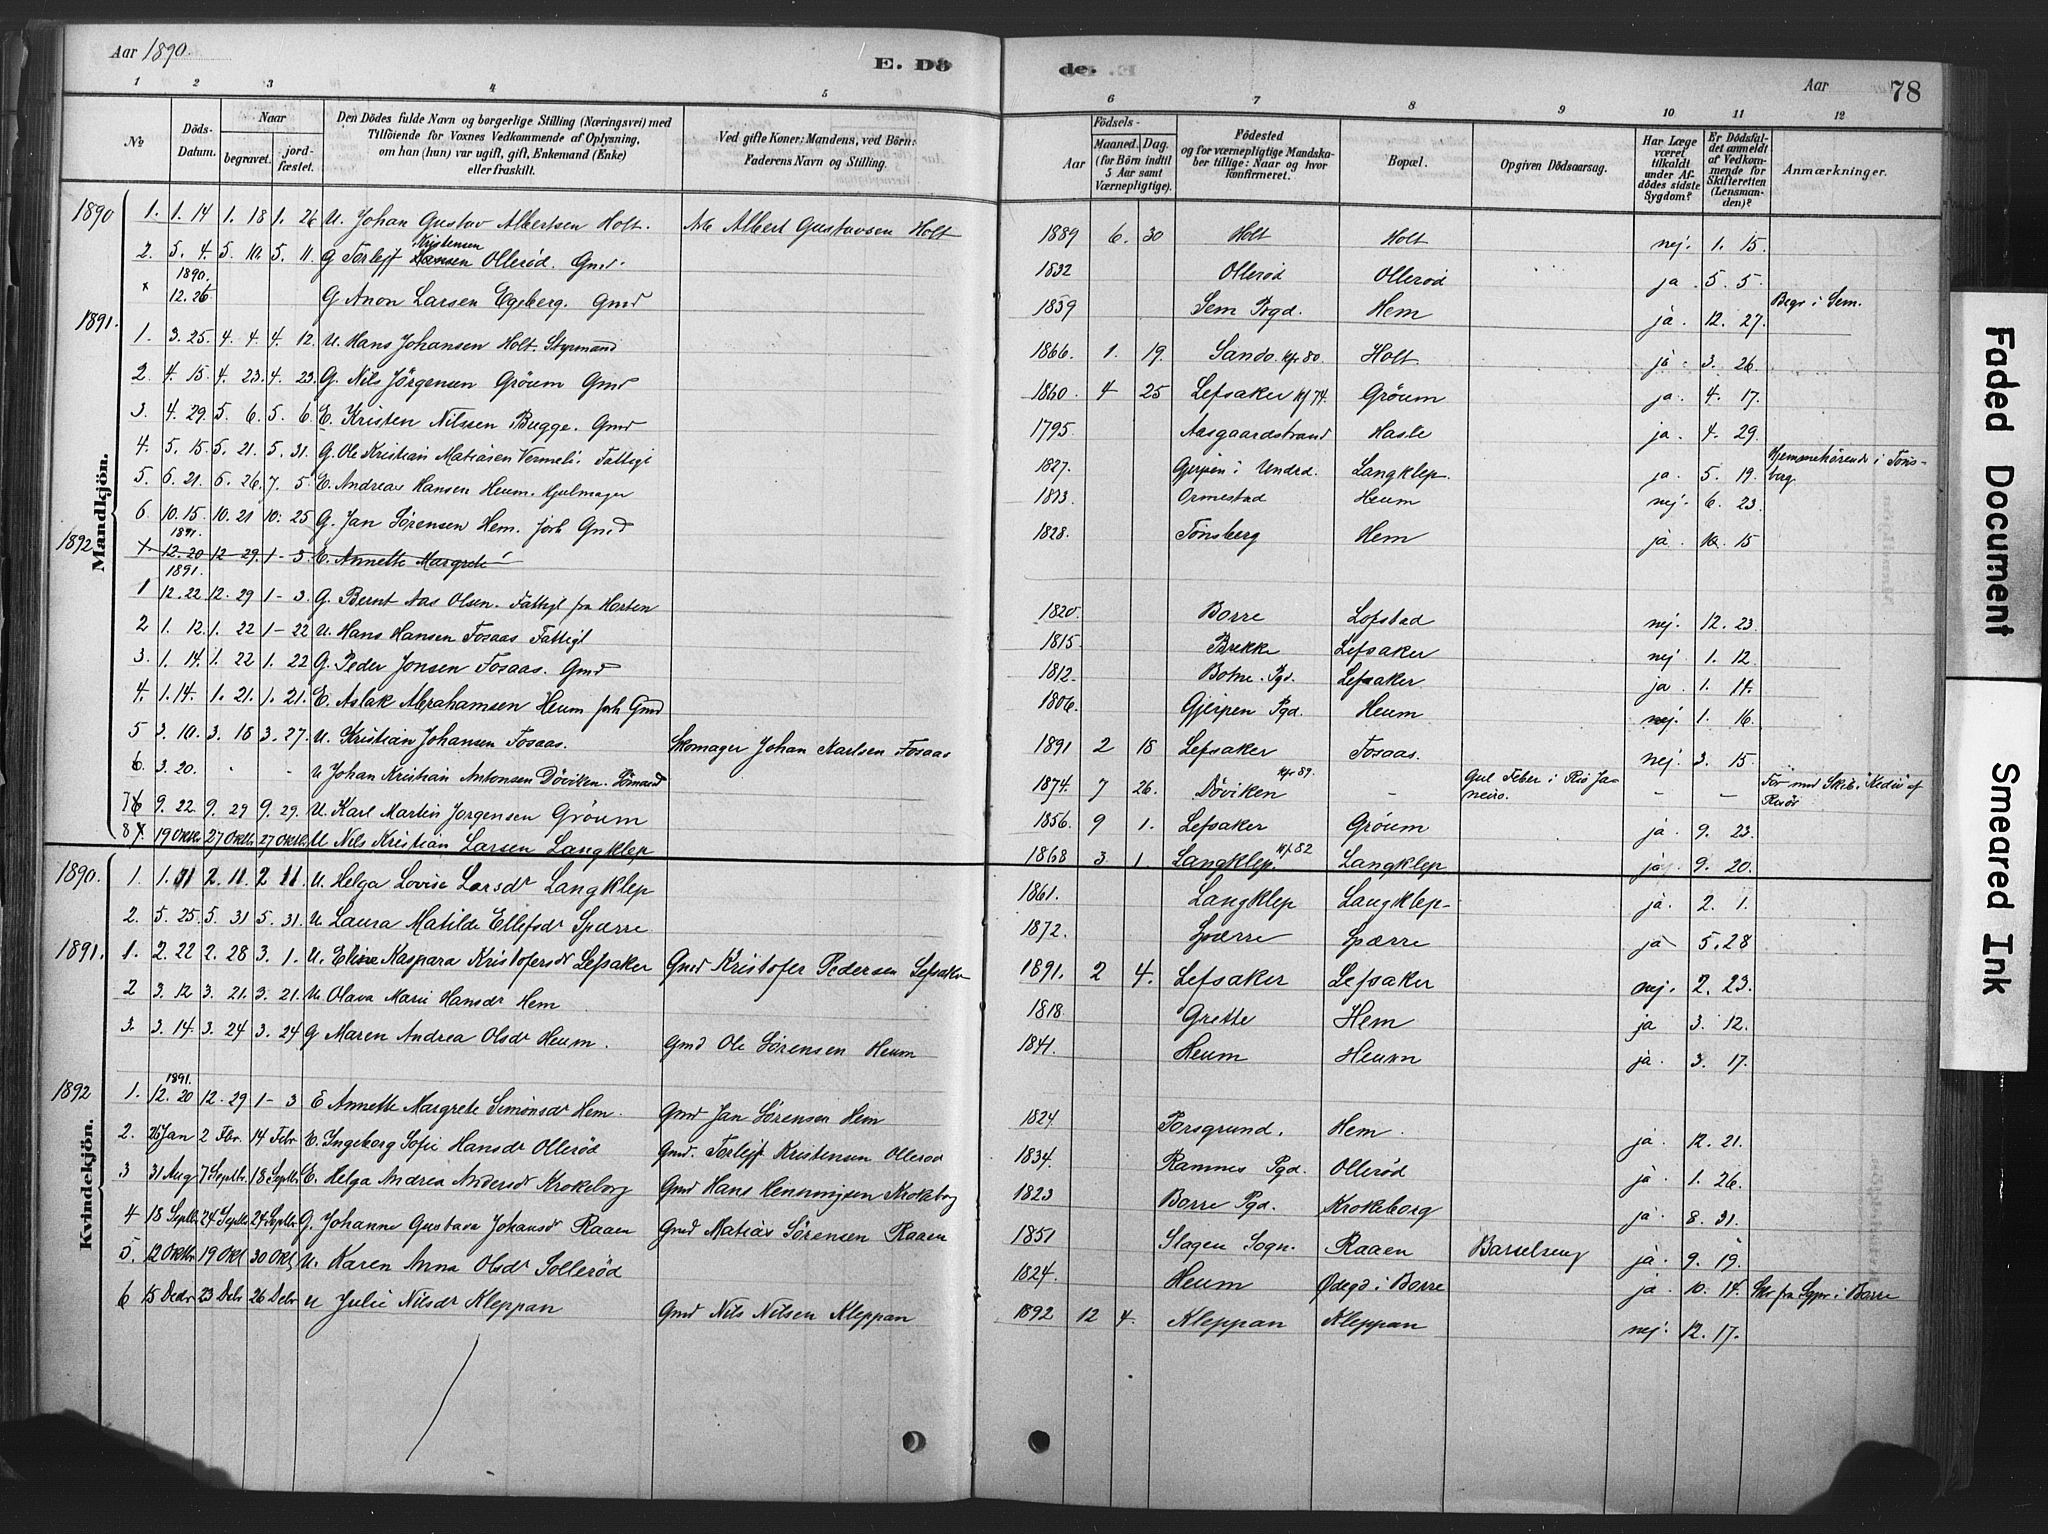 Aar 1890. E. Dö de. Aar 78
1 2 3 4 5 6 7 8 9 10 11 12
No
Döds-Datum.
Naar
begravet.
jord-fæstet.
Den Dödes fulde Navn og borgerlige Stilling (Næringsvei) med
Tilföiende for Voxnes Vedkommende af Oplysning,
om han (hun) var ugift, gift, Enkemand (Enke)
eller fraskilt.
Ved gifte Koner: Mandens, ved Börn:
Faderens Navn og Stilling.
Födsels-
Aar
Maaned. Dag.
(for Börn indtil
5 Aar samt
Værnepligtige).
Födested
og for værnepligtige Mandska-
ber tillige: Naar og hvor
konfirmeret.
Bopæl.
Opgiven Dödsaarsag.
Har Læge
været
tilkaldt
under Af-
dödes sidste
Sygdom?
Er Dödsfal-
det anmeldt
af Vedkom-
mende for
Skifteretten
(Lensman-
den)?
Anmærkninger.
Mandkjön.
1890 1. 1. 14 1. 18 1. 26 U. Johan Gustav Albertsen Holt. Arb Albert Gustavsen Holt 1889 6. 30 Holt Holt nej. 1. 15.
2. 5. 4. 5. 10. 5. 11. G Torleff Kristensen Ollerød. Gmd. 1832 Ollerød Ollerød ja. 5. 5.
x 1890. 12. 26 G Anon Larsen Egeberg. Gmd 1859 Sem Prgd. Hem ja. 12. 27. Begr i Sem.
1891. 1. 3. 25. 4. 4. 4. 12. U. Hans Johansen Holt. Styrmand 1866. 1. 19. Sando. Kf. 80. Holt ja. 3. 26
2 4. 15. 4. 23. 4. 23. G. Nils Jörgensen Gröum Gmd 1860. 4 25 Lefsaker Kf 74. Gröum ja. 4. 17.
3. 4. 29. 5. 6. 5. 6. E. Kristen Nilssen Bugge. Gmd 1795. Aasgaardstrand Hasle ja. 4. 29.
4. 5. 15. 5. 21. 5. 31. G. Ole Kristian Matiasen Vermeli. Fattigl 1827. Gjerpen i Undrd. Langklep. ja. 5. 19. Hjemmehörende i Töns-berg
5. 6. 21. 6. 26. 7. 5. E. Andreas Hansen Heum. Hjulmager 1813. Ormestad Heum nej. 6. 23.
6. 10. 15. 10. 21 10. 25 G. Jan Sörensen Hem. forh Gmd 1828. Tönsberg Hem ja. 10. 15
1892 x. 1891. 12. 20 12 29. 1 - 3 E. Annette Margrete
1 1891. 12. 22 12. 29 1 - 3. G. Bernt Aas Olsen. Fattigl fra Horten 1820. Borre Lofstad nej. 12. 23.
2 1. 12. 1. 22 1 - 22 U. Hans Hansen Fosaas Fattigl 1815. Brekke Lefsaker nej 1. 12.
3. 1. 14. 1. 22 1. 22 G. Peder Jonsen Fosaas. Gmd 1812. Botne. Pgd. Lefsaker. ja. 1. 14.
4. 1. 14. 1. 21. 1. 21. E. Aslak Abrahamsen Heum forh Gmd 1806. Gjerpen Pgd. Heum nej. 1. 16.
5 3. 10. 3. 18 3. 27. U. Kristian Johansen Fosaas. Skomager Johan Karlsen Fosaas 1891 2 18 Lefsaker Fosaas. nej. 3. 15.
6. 3. 20. - - U Johan Kristian Antonsen Döviken. Sömand 1874. 7 26. Döviken Kfr 89. - Gul Feber i Rio Janeiro. - - For med Skib af Risör
7 9. 22. 9. 29 9. 29. U. Karl Martin Jorgensen Gröum 1856. 9 1. Lefsaker Gröum ja. 9. 23.
8 19 Oktbr 27 Oktbr. 27 Oktbr. U Nils Kristian Larsen Langklep 1868 3. 1. Langklep. Kf. 82 Langklep ja. 9. 20.
Kvindekjön.
1890. 1. 1. 2 11. 2 11 U. Helga Lovise Larsdr Langklep 1861. Langklep Langklep- ja. 2. 1.
2. 5. 25. 5. 31 5. 31. U Laura Matilde Ellefsdr Spærre 1872. Spærre Spærre ja 5. 28
1891. 1. 2. 22 2. 28 3. 1. U. Eline Kaspara Kristofersdr Lefsaker Gmd Kristofer Pedersen Lefsaker 1891. 2 4. Lefsaker Lefsaker nej. 2. 23.
2 3. 12 3. 21. 3. 21. U Olava Marie Hansdr Hem 1818. Grette Hem ja 3. 12.
3. 3. 14. 3. 24 3. 24 G Maren Andrea Olsdr Heum. Gmd Ole Sörensen Heum 1841. Heum Heum ja. 3. 17.
1892 1. 1891. 12. 20 12. 29 1 - 3 E Annette Margrete Simonsdr Hem. Gmd Jan Sörensen Hem 1824. Porsgrund. Hem. ja. 12. 21.
2. 25 Jan 2 Fbr. 14 Febr E. Ingeborg Sofie Hansdr Olleröd Gmd. Torleff Kristensen Olleröd 1834. Ramnes Pgd. Olleröd ja. 1. 26.
3 31 Aug 7 Septbr 18 Septbr E. Helga Andrea Andersdr Krokeborg Gmd Hans Henningsen Krokeborg 1823 Borre Pgd. Krokeborg ja. 8. 31.
4 18 Septbr 24 Septbr 24 Septbr G. Johanne Gustava Johansdr Raaen Gmd Matias Sörensen Raaen 1851 Slagen Sogn. Raaen Barselseng ja. 9. 19.
5. 12 Oktbr 19 Okt 30 Okt U. Karen Anna Olsdr Solleröd 1824. Heum Ødegd i Borre ja. 10. 14. Skr fra Spr i Borre
6 15 Decbr 23 Debr 26 Debr U Julie Nilsdr Kleppan Gmd Nils Nilsen Kleppan 1892 12 4. Kleppan Kleppan nej. 12. 17.
Faded Document
Smeared Ink